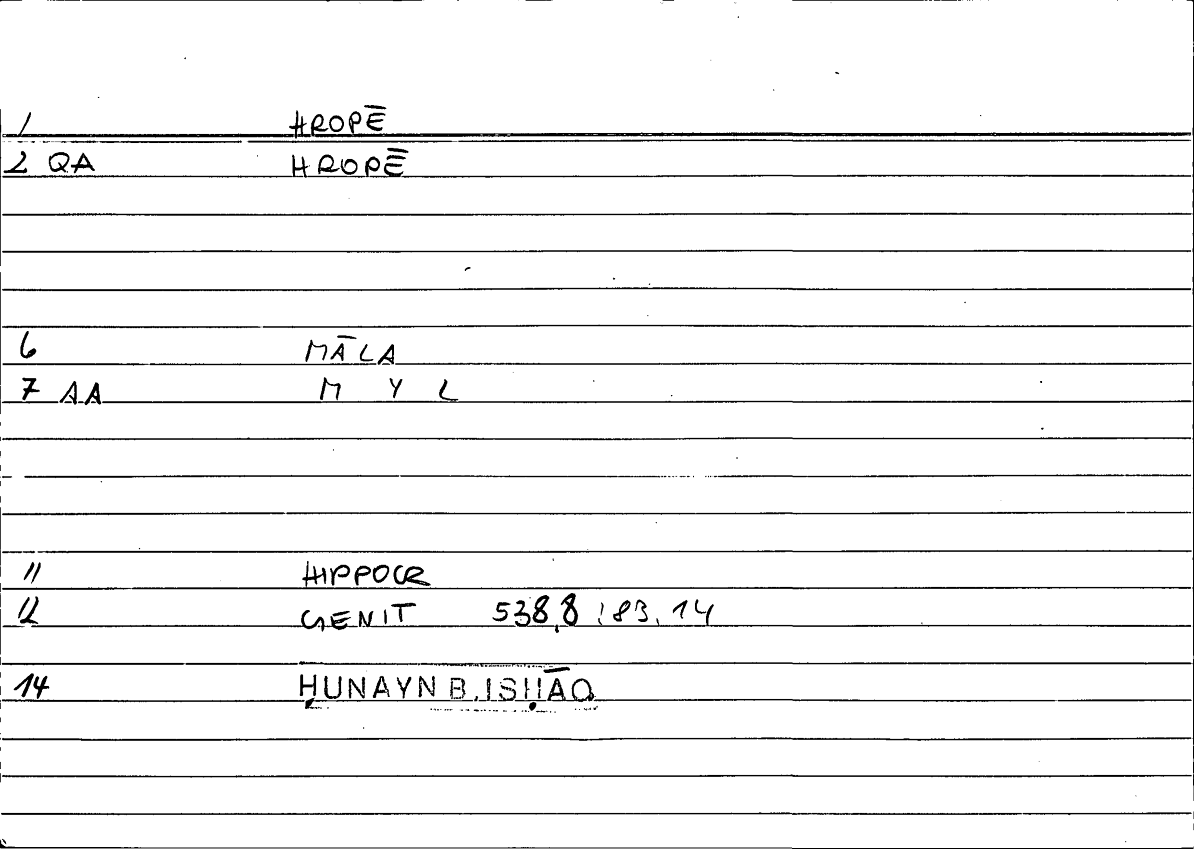 1 HROPĒ
2 QA HROPĒ
6 MĀLA
7 AA M Y L
11 HIPPOCR
12 GENIT 538,8 : 83,14
14 ḤUNAYN B. ISḤĀQ